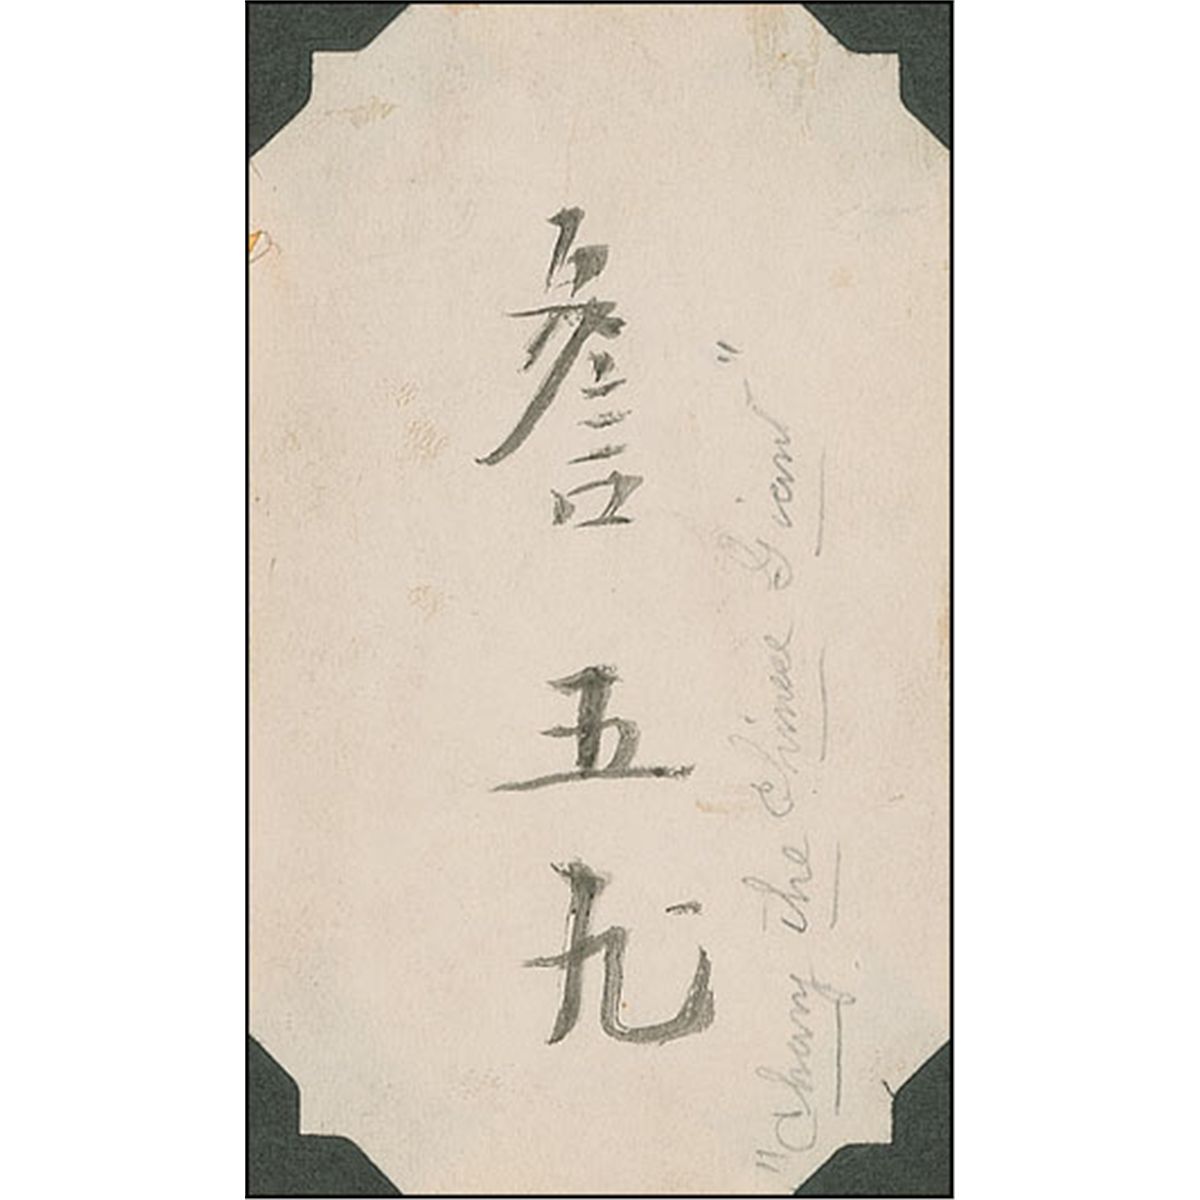 詹五九
"Chang the Chinese Giant"